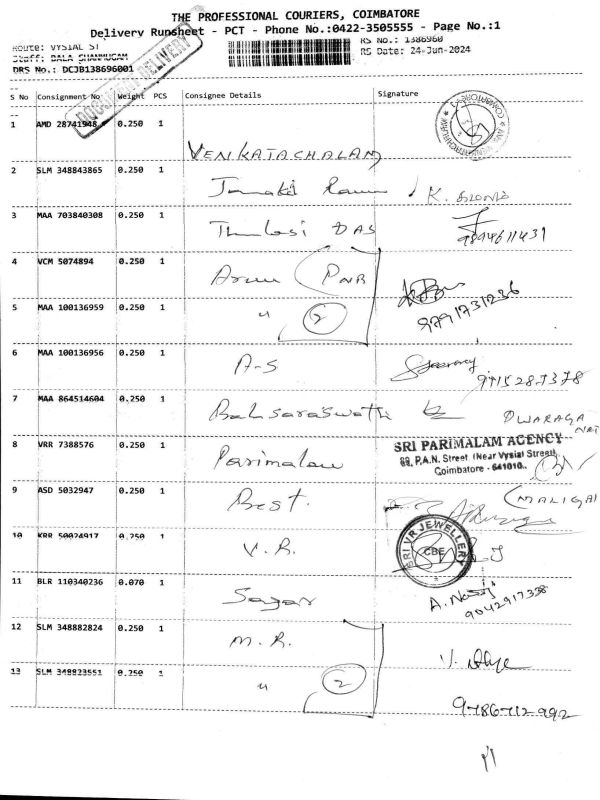 THE PROFESSIONAL COURIERS, COIMBATORE
Delivery Runsheet - PCT - Phone No.:0422-3505555 - Page No.:1
Route: VYSIAL ST
RS No.: 1386960
Staff: BALA SHANMUGAM
RS Date: 24-Jun-2024
DRS No.: DCJB138696001
S No Consignment No Weight PCS Consignee Details Signature
1 AMD 28741948 0.250 1
VENKATACHALAM
2 SLM 348843865 0.250 1
Janaki Raman K.
3 MAA 703840308 0.250 1
Thulasi DAS 9894611431
4 VCM 5074894 0.250 1
Arun (PNB
5 MAA 100136959 0.250 1
" 2 9791731236
6 MAA 100136956 0.250 1
A-S
7 MAA 864514604 0.250 1
Balisaraswathi DWARAGA
8 VRR 7388576 0.250 1
Parimalam
SRI PARIMALAM AGENCY
88, P.A.N. Street (Near Vysial Street)
Coimbatore - 641010.
9 ASD 5032947 0.250 1
Best.
(MALIGAI
10 KRR 50024917 0.250 1
V.R.
SRI VR JEWELLERY
CBE
11 BLR 110340236 0.070 1
Sagar
12 SLM 348882824 0.250 1
M.R.
13 SLM 348823551 0.250 1
" 2
9786712992